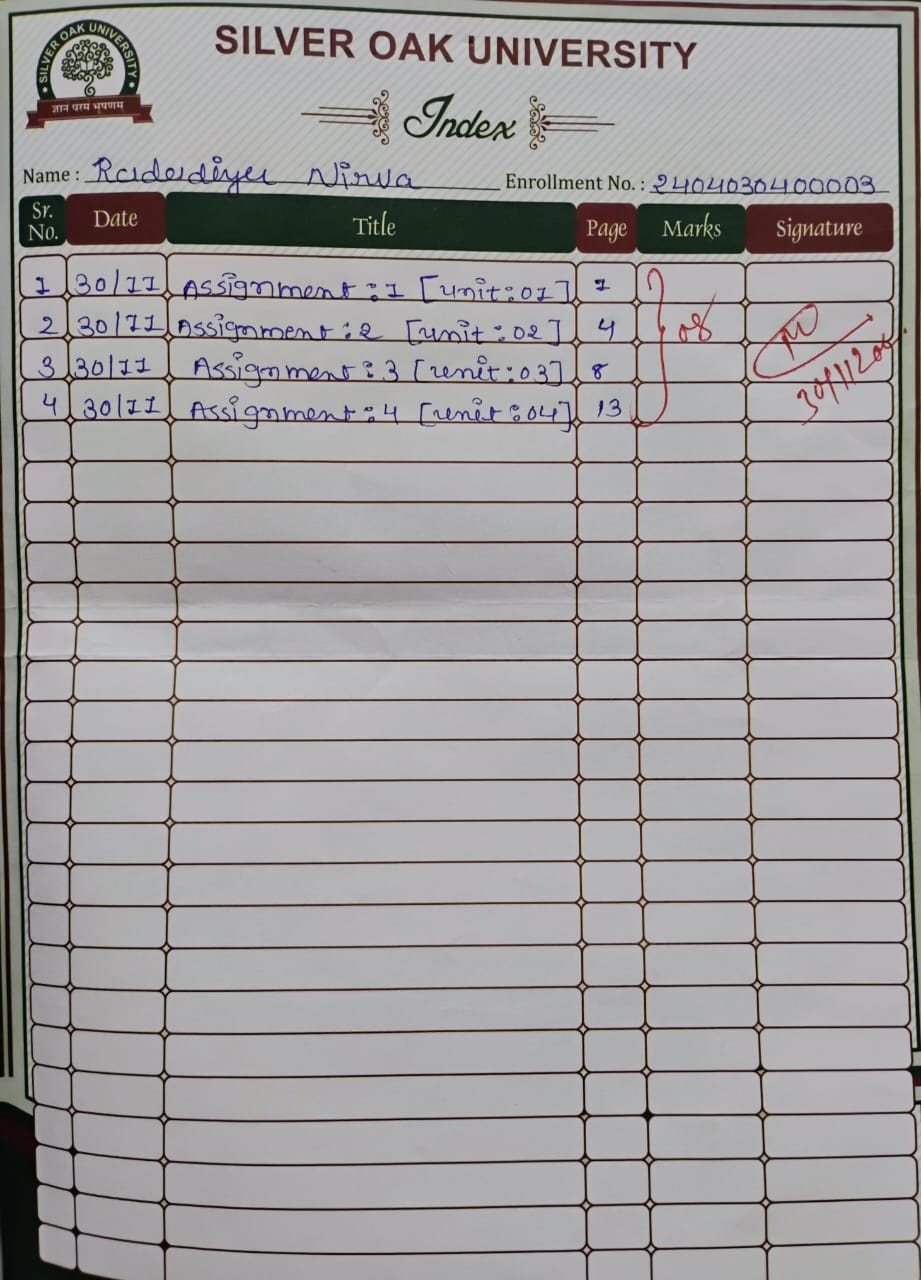 SILVER OAK UNIVERSITY
ज्ञानं परमं भूषणम्
SILVER OAK UNIVERSITY
Index
Name : Radadiya Nirva Enrollment No. : 2404030400003
Sr. No. Date Title Page Marks Signature
1 30/11 Assignment : 1 [unit : 01] 1
2 30/11 Assignment : 2 [unit : 02] 4 08
3 30/11 Assignment : 3 [unit : 03] 8
4 30/11 Assignment : 4 [unit : 04] 13